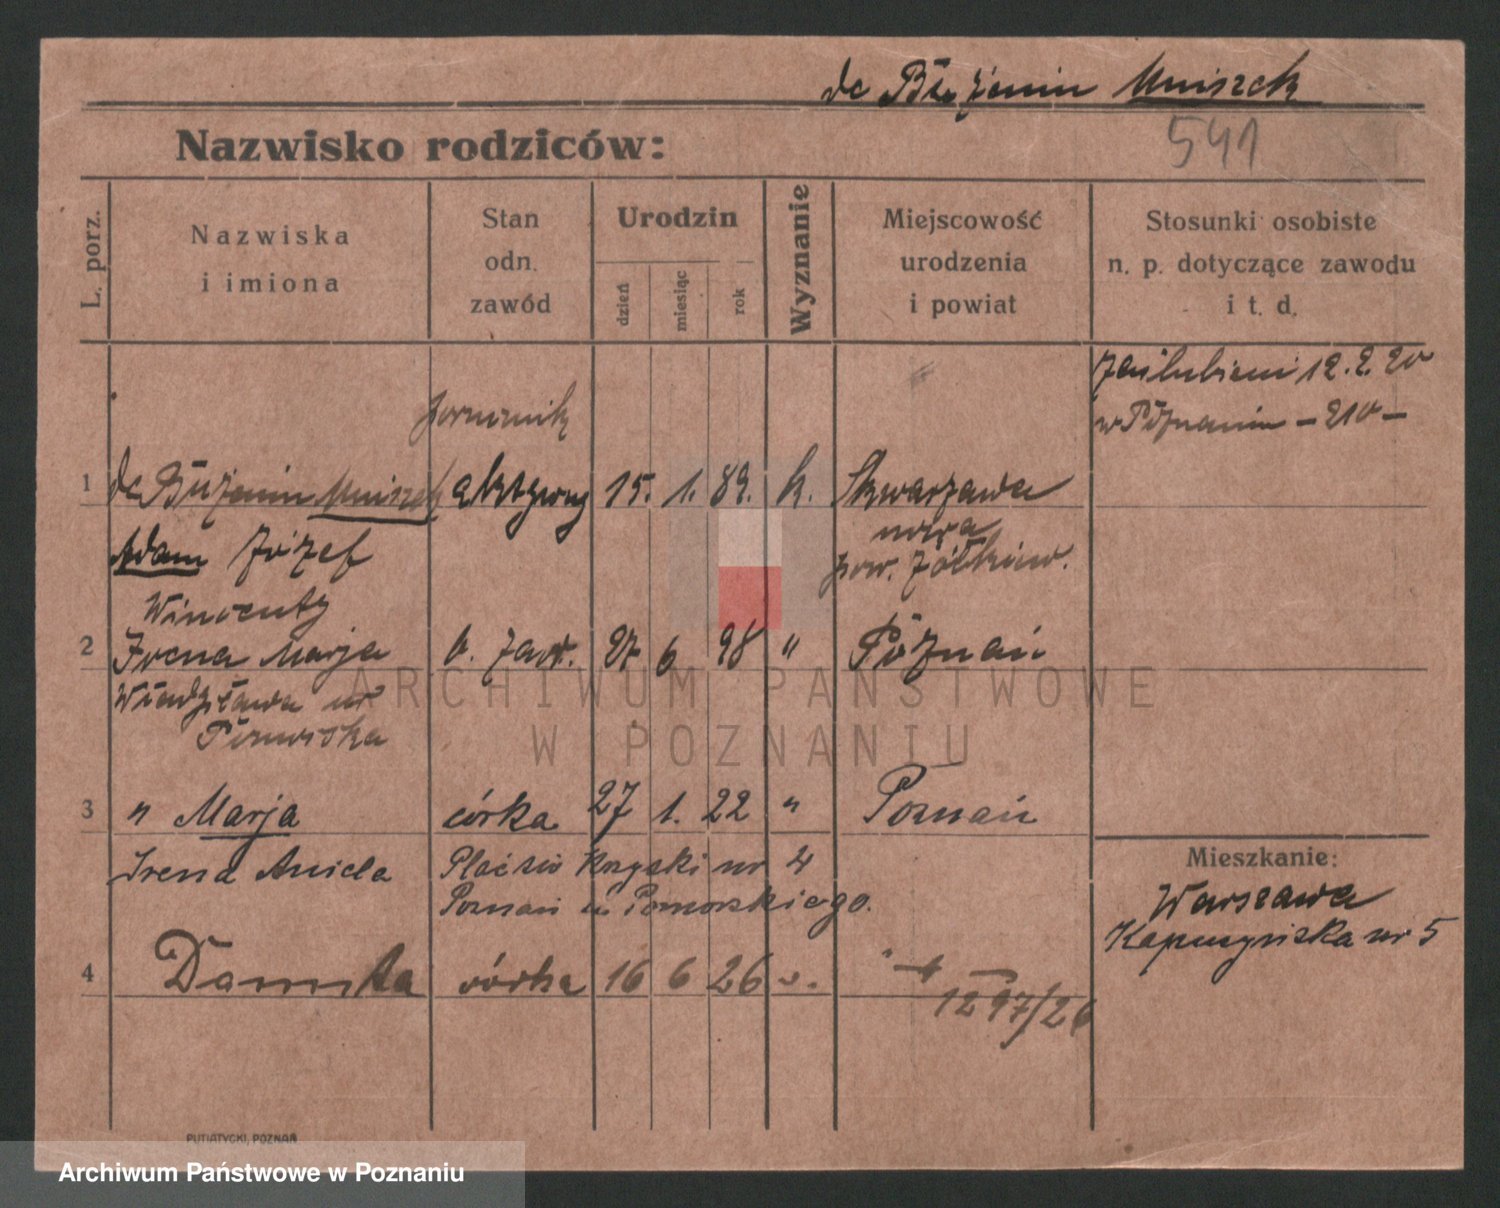 de Bużenin Mniszek
541
Nazwisko rodziców:
L. porz.
Nazwiska
i imiona
Stan
odn.
zawód
Urodzin
dzień
miesiąc
rok
Wyznanie
Miejscowość
urodzenia
i powiat
Stosunki osobiste
n. p. dotyczące zawodu
i t. d.
zaślubieni 12. 2. 20
w Poznaniu – 210 –
porucznik
1 de Bużenin Mniszek aktywny 15. 1. 89. k. Skwarzawa
nowa
Adam Józef pow. Żółkiew.
Winocenty
2 Irena Marja b. zaw. 27 6 98 " Poznań
Władysława ur
ARCHIWUM PAŃSTWOWE
W POZNANIU
3 " Marja córka 27 1. 22 " Poznań
Irena Aniela
nr 4
Poznań
Mieszkanie:
Warszawa
Kapucyńska nr 5
4 Danuta córka 16 6 26 ".
1297/26
PUTIATYCKI, POZNAŃ
Archiwum Państwowe w Poznaniu